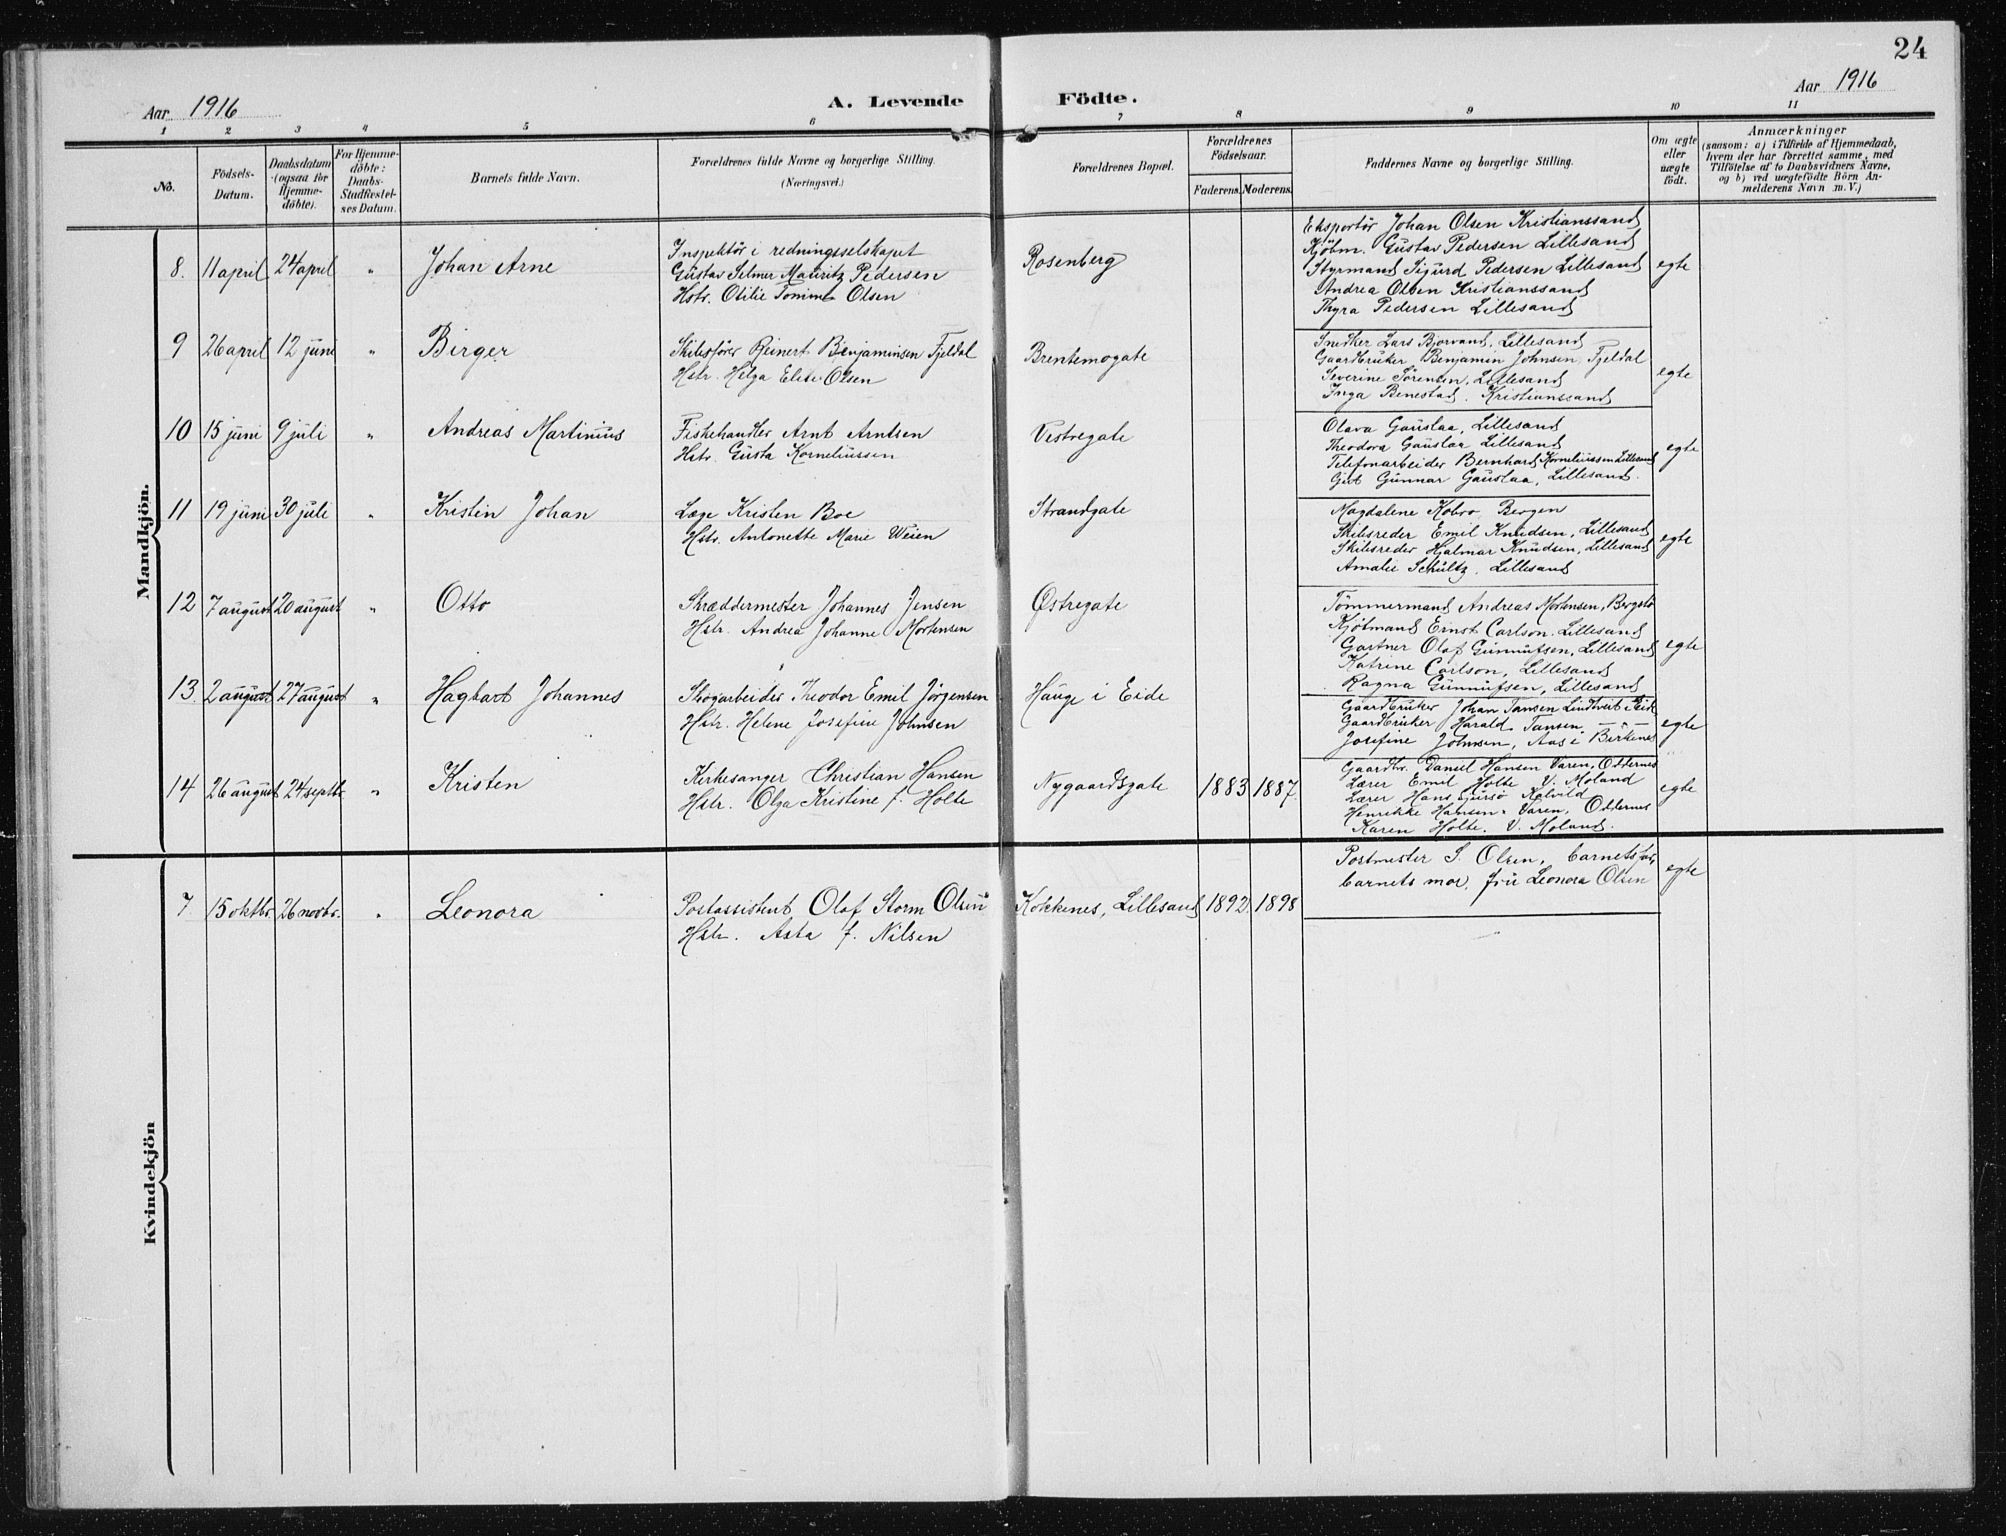 24
Aar 1916
A. Levende Födte.
Aar 1916
1 2 3 4 5 6 7 8 9 10 11
No.
Födsels-Datum.
Daabsdatum (ogsaa for Hjemme-döbte).
For Hjemme-döbte: Daabs-Stadfæstel-ses Datum.
Barnets fulde Navn.
Forældrenes fulde Navne og borgerlige Stilling.
(Næringsvei.)
Forældrenes Bopæl.
Forældrenes Födselsaar.
Faderens. Moderens.
Faddernes Navne og borgerlige Stilling.
Om ægte eller uægte födt.
Anmærkninger
(saasom: a) i Tilfælde af Hjemmedaab,
hvem der har forrettet samme, med
Tilföielse af to Daabsvidners Navne,
og b) ved uægtefödte Börn An-
melderens Navn m. V.)
Mandkjön.
8. 11 april 24 april " Johan Arne
Inspektör i redningsselskapet
Gustav Selmer Mauritz Pedersen
Hstr. Otilie Tomine Olsen
Rosenberg
Eksportör Johan Olsen Kristianssand
Kjöbm. Gustav Pedersen Lillesand
Styrmand Sigurd Pedersen Lillesand
Andrea Olsen Kristianssand
Thyra Pedersen Lillesand
egte
9 26 april 12 juni " Birger
Skibsförer Reinert Benjaminsen Fjeldal
Hstr. Helga Elise Olsen
Brentemogate
Snedker Lars Bjorvand, Lillesand
Gaardbruker Benjamin Johnsen, Fjeldal
Severine Sörensen, Lillesand
Inga Benestad. Kristianssand
egte
10 15 juni 9 juli " Andreas Martinius
Fiskehandler Arnt Arntsen
Hstr. Gusta Korneliussen
Vestregate
Olava Gauslaa, Lillesand
Theodora Gauslaa Lillesand
Telefonarbeider Bernhard Korneliussen Lillesand
Gut Gunnar Gauslaa, Lillesand.
egte
11 19 juni 30 juli " Kristen Johan
Læge Kristen Boe
Hstr. Antonette Marie Weien
Strandgate
Magdalene Kobro Bergen
Skibsreder Emil Knudsen, Lillesand
Skibsreder Hjalmar Knudsen, Lillesand
Amalie Schultz. Lillesand
egte
12 7 august 20 august " Otto
Skræddermester Johannes Jensen
Hstr. Andrea Johanne Mortensen
Østregate
Tömmermand Andreas Mortensen, Bergstö
Kjötmand Ernst Carlson. Lillesand
Gartner Olaf Gunnufsen, Lillesand
Katrine Carlson, Lillesand
Ragna Gunnufsen, Lillesand
egte
13. 2 august 27 august " Hagbart Johannes
Skogarbeider Theodor Emil Jörgensen
Hstr. Helene Josefine Johnsen
Hauge i Eide
Gaardbruker Johan Tansen Lindtveit i Eide
Gaardbruker Harald Tansen — " —
Josefine Johnsen, Aas i Birkenes
egte
14 26 august 24 septbr. " Kristen
Kirkesanger Christian Hansen
Hstr. Olga Kristine f. Holte
Nygaardsgate 1883 1887.
Gaardbr. Daniel Hansen Varen, Oddernes
Lærer Emil Holte V. Moland
Lærer Hans Gursö Kalvild
Henrikke Hansen. Varen, Oddernes
Karen Holte. V. Moland.
egte
Kvindekjön
7 15 oktbr. 26 novbr. " Leonora
Postassistent Olaf Storm Olsen
Hstr. Asta f. Nilsen
Kokkenes, Lillesand 1892. 1898
Postmester S. Olsen, barnets far,
barnets mor, fru Leonora Olsen
egte